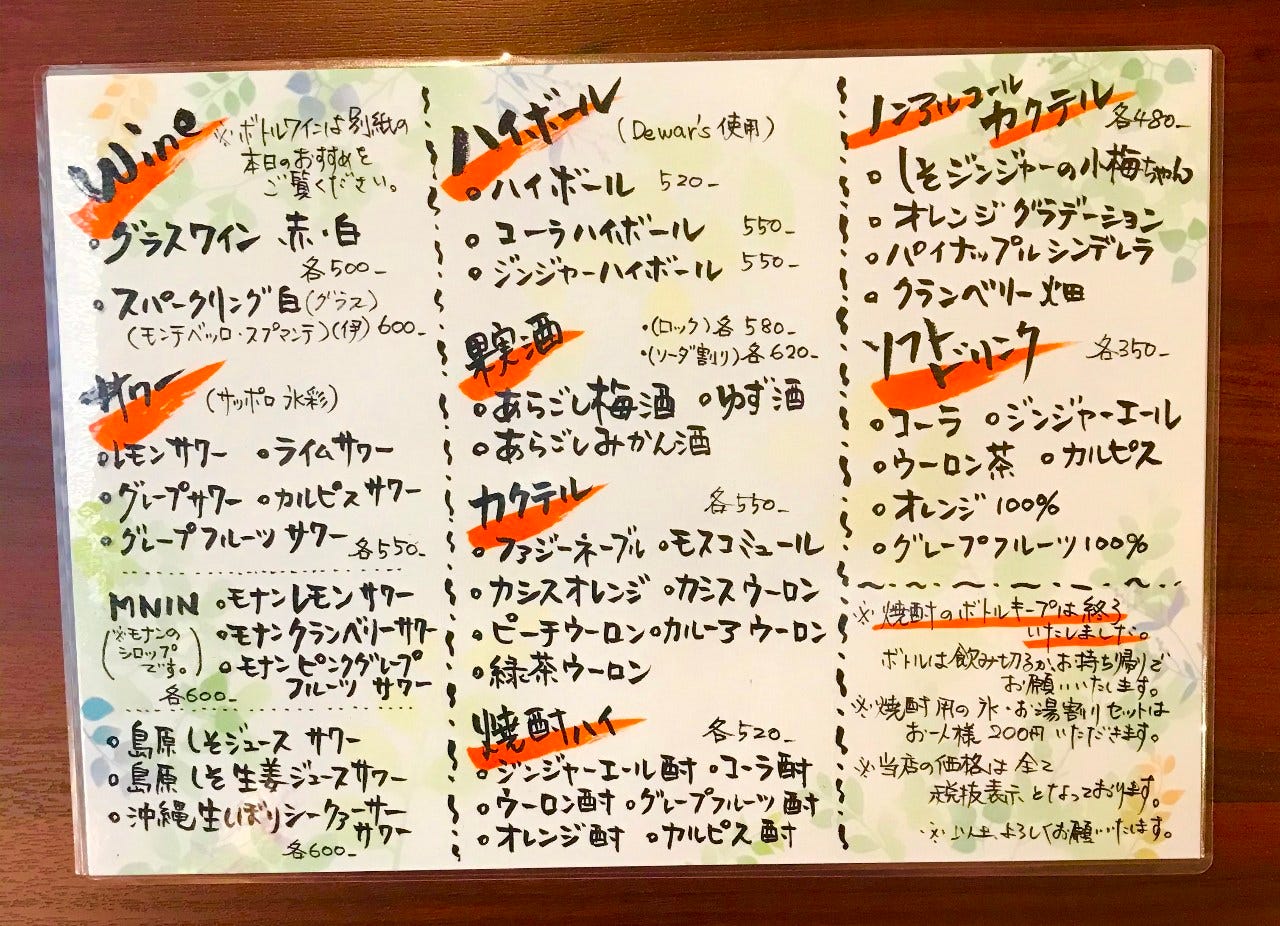 Wine
※ボトルワインは別紙の
本日のおすすめを
ご覧ください。
○グラスワイン 赤・白
各500-
○スパークリング白(グラス)
(モンテベッロ・スプマンテ)(伊) 600-
サワー (サッポロ 氷彩)
○レモンサワー ○ライムサワー
○グレープサワー ○カルピスサワー
○グレープフルーツ サワー 各550-
MNIN ○モナンレモン サワー
(※モナンの
シロップ
です。)
○モナンクランベリーサワー
○モナンピンクグレープ
フルーツ サワー
各600-
○島原 しそジュース サワー
○島原 しそ生姜ジュースサワー
○沖縄生しぼりシークァーサー
サワー
各600-
ハイボール (Dewar's 使用)
○ハイボール 520-
○コーラハイボール 550-
○ジンジャーハイボール 550-
果実酒 ・(ロック)各 580-
・(ソーダ割り)各 620-
○あらごし梅酒 ○ゆず酒
○あらごしみかん酒
カクテル 各550-
○ファジーネーブル ○モスコミュール
○カシスオレンジ ○カシスウーロン
○ピーチウーロン ○カルーア ウーロン
○緑茶ウーロン
焼酎ハイ 各520-
○ジンジャーエール酎 ○コーラ酎
○ウーロン酎 ○グレープフルーツ酎
○オレンジ酎 ○カルピス酎
ノンアルコール
カクテル 各480-
○しそジンジャーの小梅ちゃん
○オレンジ グラデーション
○パイナップルシンデレラ
○クランベリー畑
ソフトドリンク 各350-
○コーラ ○ジンジャーエール
○ウーロン茶 ○カルピス
○オレンジ 100%
○グレープフルーツ100%
※焼酎のボトルキープは終了
いたしました。
ボトルは飲み切るか、お持ち帰りで
お願いいたします。
※焼酎用の氷・お湯割りセットは
お一人様 200円 いただきます。
※当店の価格は 全て
税抜表示 となっております。
※以上、よろしくお願いいたします。